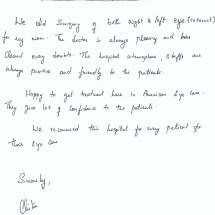 We did Surgery of both right & left eye (cataract)
for my mom. The doctor is always pleasing and been
Cleared every doubts. The hospital atmosphere, staffs are
always positive and friendly to the patients.
Happy to get treatment here in American Eye care.
They give lot of confidence to the patients.
We recommend this hospital for every patient for
their Eye care.
Sincerely,